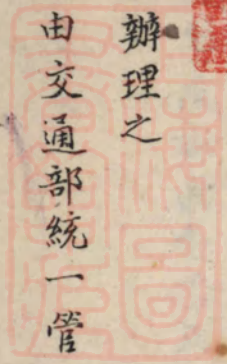 辦理之
由交通部統一管